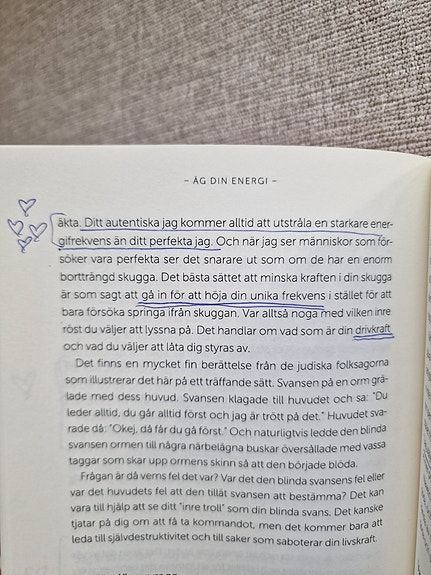 – ÄG DIN ENERGI –
äkta. Ditt autentiska jag kommer alltid att utstråla en starkare ener-
gifrekvens än ditt perfekta jag. Och när jag ser människor som för-
söker vara perfekta ser det snarare ut som om de har en enorm
bortträngd skugga. Det bästa sättet att minska kraften i din skugga
är som sagt att gå in för att höja din unika frekvens i stället för att
bara försöka springa ifrån skuggan. Var alltså noga med vilken inre
röst du väljer att lyssna på. Det handlar om vad som är din drivkraft
och vad du väljer att låta dig styras av.
Det finns en mycket fin berättelse från de judiska folksagorna
som illustrerar det här på ett träffande sätt. Svansen på en orm grä-
lade med dess huvud. Svansen klagade till huvudet och sa: "Du
leder alltid, du går alltid först och jag är trött på det." Huvudet sva-
rade då: "Okej, då får du gå först." Och naturligtvis ledde den blinda
svansen ormen till några närbelägna buskar översållade med vassa
taggar som skar upp ormens skinn så att den började blöda.
Frågan är då vems fel det var? Var det den blinda svansens fel eller
var det huvudets fel att den tillåt svansen att bestämma? Det kan
vara till hjälp att se ditt "inre troll" som din blinda svans. Det kanske
tjatar på dig om att få ta kommandot, men det kommer bara att
leda till självdestruktivitet och till saker som saboterar din livskraft.